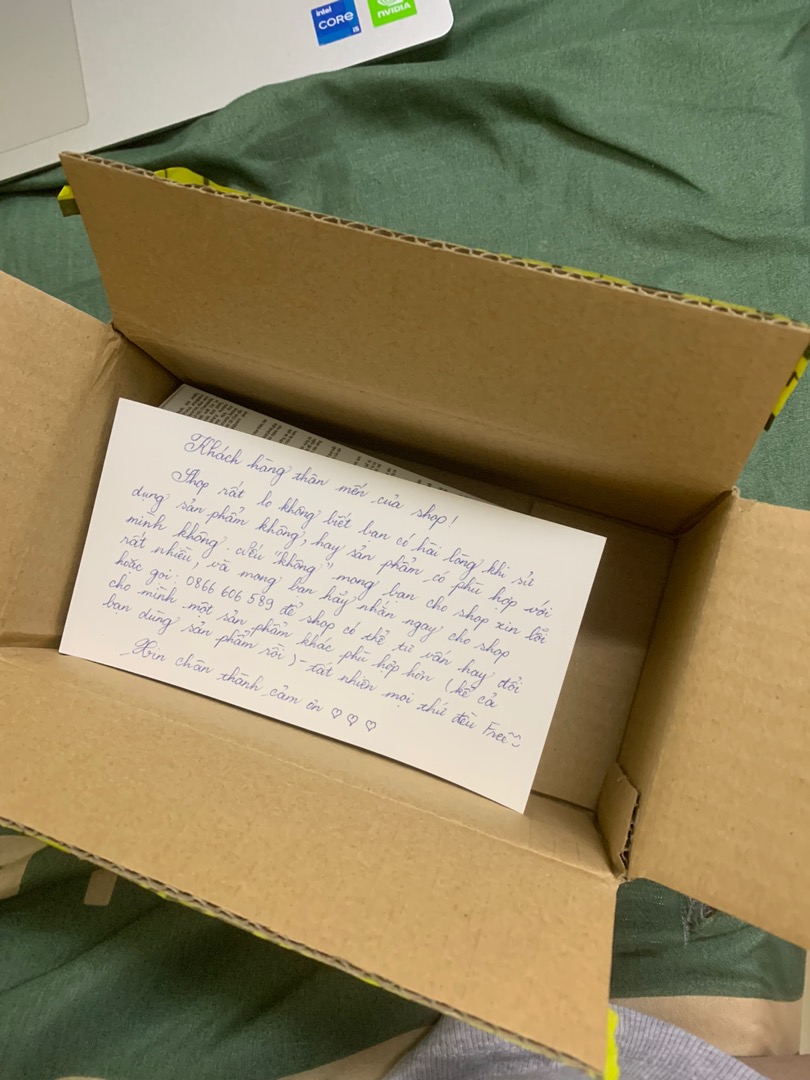 intel
CORE
i5
NVIDIA
Khách hàng thân mến của shop!
Shop rất lo không biết bạn có hài lòng khi sử
dụng sản phẩm không, hay sản phẩm có phù hợp với
mình không. Nếu "không" mong bạn cho shop xin lỗi
rất nhiều, và mong bạn hãy nhắn ngay cho shop
hoặc gọi: 0866 606 589 để shop có thể tư vấn hay đổi
cho mình một sản phẩm khác phù hợp hơn (kể cả
bạn dùng sản phẩm rồi) - tất nhiên mọi thứ đều Free
Xin chân thành cảm ơn ♡♡♡